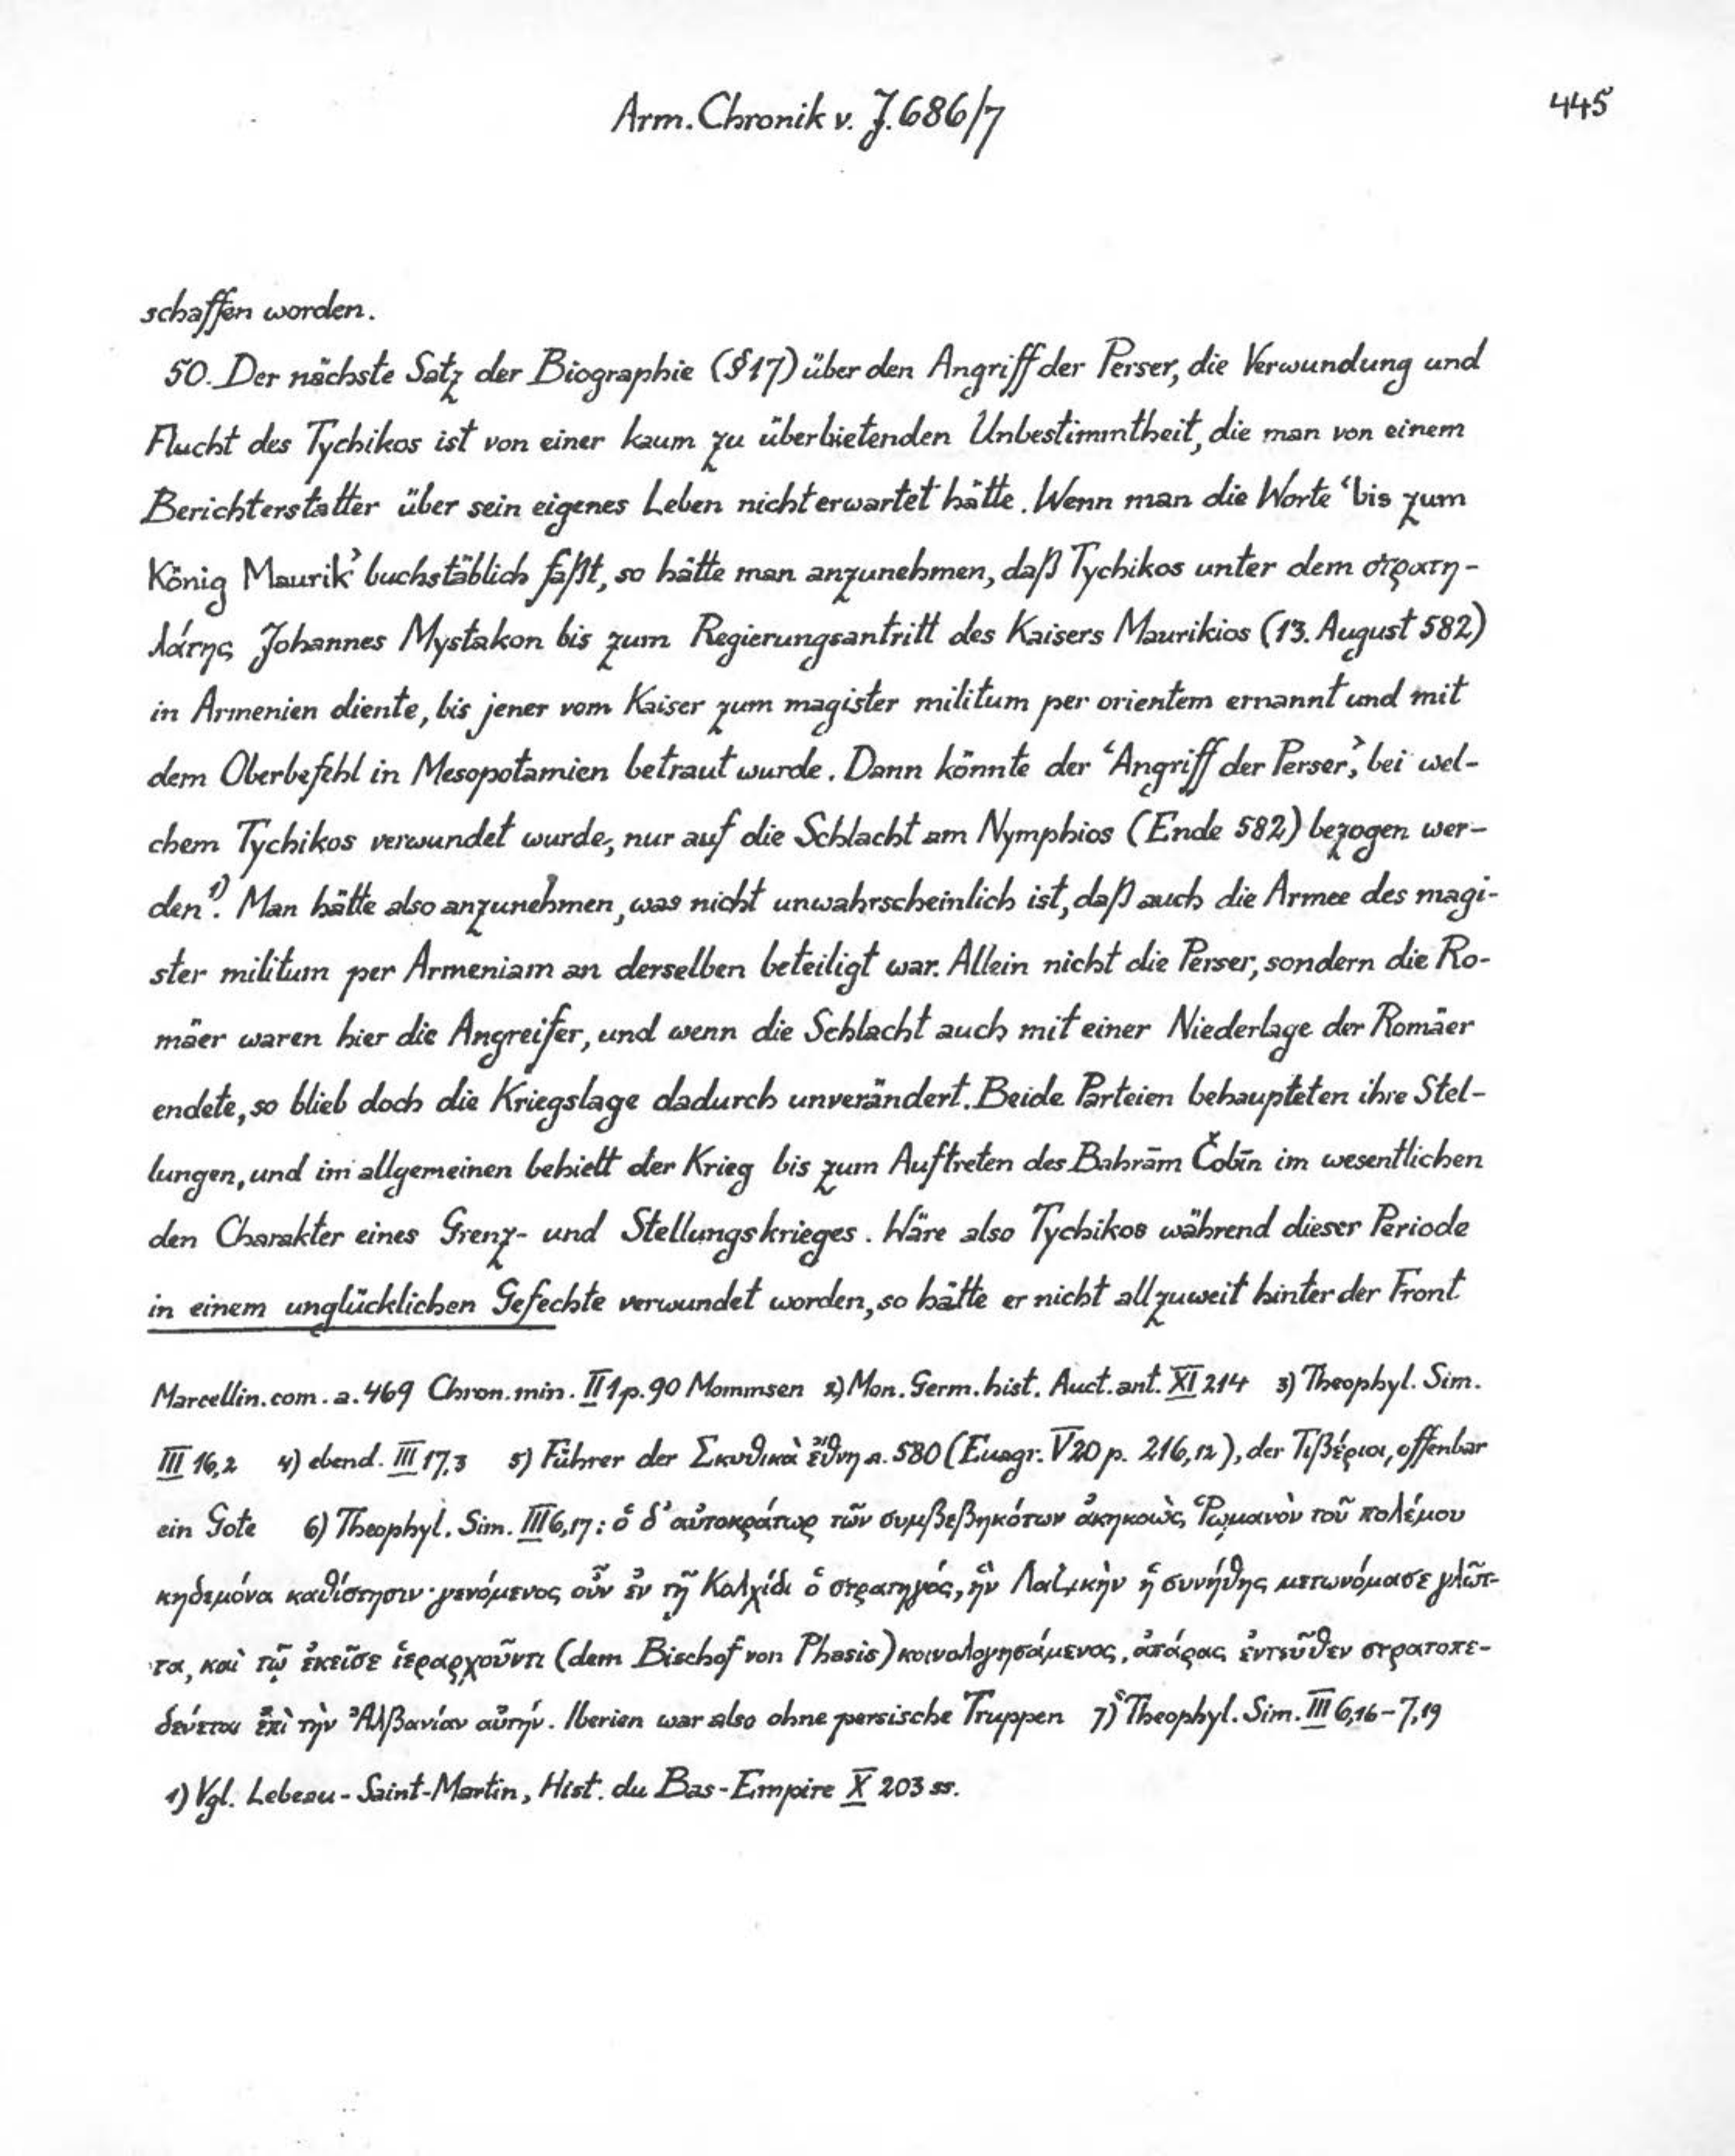 Arm. Chronik v. J. 686/7
445
schaffen worden.
50. Der nächste Satz der Biographie (§ 17) über den Angriff der Perser, die Verwundung und
Flucht des Tychikos ist von einer kaum zu überbietenden Unbestimmtheit, die man von einem
Berichterstatter über sein eigenes Leben nicht erwartet hätte. Wenn man die Worte ‘bis zum
König Maurik’ buchstäblich faßt, so hätte man anzunehmen, daß Tychikos unter dem στρατη-
λάτης Johannes Mystakon bis zum Regierungsantritt des Kaisers Maurikios (13. August 582)
in Armenien diente, bis jener vom Kaiser zum magister militum per orientem ernannt und mit
dem Oberbefehl in Mesopotamien betraut wurde. Dann könnte der ‘Angriff der Perser’, bei wel-
chem Tychikos verwundet wurde, nur auf die Schlacht am Nymphios (Ende 582) bezogen wer-
den¹⁾. Man hätte also anzunehmen, was nicht unwahrscheinlich ist, daß auch die Armee des magi-
ster militum per Armeniam an derselben beteiligt war. Allein nicht die Perser, sondern die Ro-
mäer waren hier die Angreifer, und wenn die Schlacht auch mit einer Niederlage der Romäer
endete, so blieb doch die Kriegslage dadurch unverändert. Beide Parteien behaupteten ihre Stel-
lungen, und im allgemeinen behielt der Krieg bis zum Auftreten des Bahrām Čobīn im wesentlichen
den Charakter eines Grenz- und Stellungskrieges. Wäre also Tychikos während dieser Periode
in einem unglücklichen Gefechte verwundet worden, so hätte er nicht allzuweit hinter der Front
Marcellin. com. a. 469 Chron. min. II 1 p. 90 Mommsen 2) Mon. Germ. hist. Auct. ant. XI 214 3) Theophyl. Sim.
III 16,2 4) ebend. III 17,3 5) Führer der Σκυθικὰ ἔθνη a. 580 (Euagr. V 20 p. 216,12), der Τιβέριοι, offenbar
ein Gote 6) Theophyl. Sim. III 6,17: ὁ δ’ αὐτοκράτωρ τῶν συμβεβηκότων ἀκηκοὼς Ῥωμανὸν τοῦ πολέμου
κηδεμόνα καθίστησιν· γενόμενος οὖν ἐν τῇ Κολχίδι ὁ στρατηγός, ἣν Λαζικὴν ἡ συνήθης μετωνόμασε γλῶτ-
τα, καὶ τῷ ἐκεῖσε ἱεραρχοῦντι (dem Bischof von Phasis) κοινολογησάμενος, ἀπάρας ἐντεῦθεν στρατοπε-
δεύεται ἐπὶ τὴν Ἀλβανίαν αὐτήν. Iberien war also ohne persische Truppen 7) Theophyl. Sim. III 6,16–7,19
1) Vgl. Lebeau-Saint-Martin, Hist. du Bas-Empire X 203 ss.